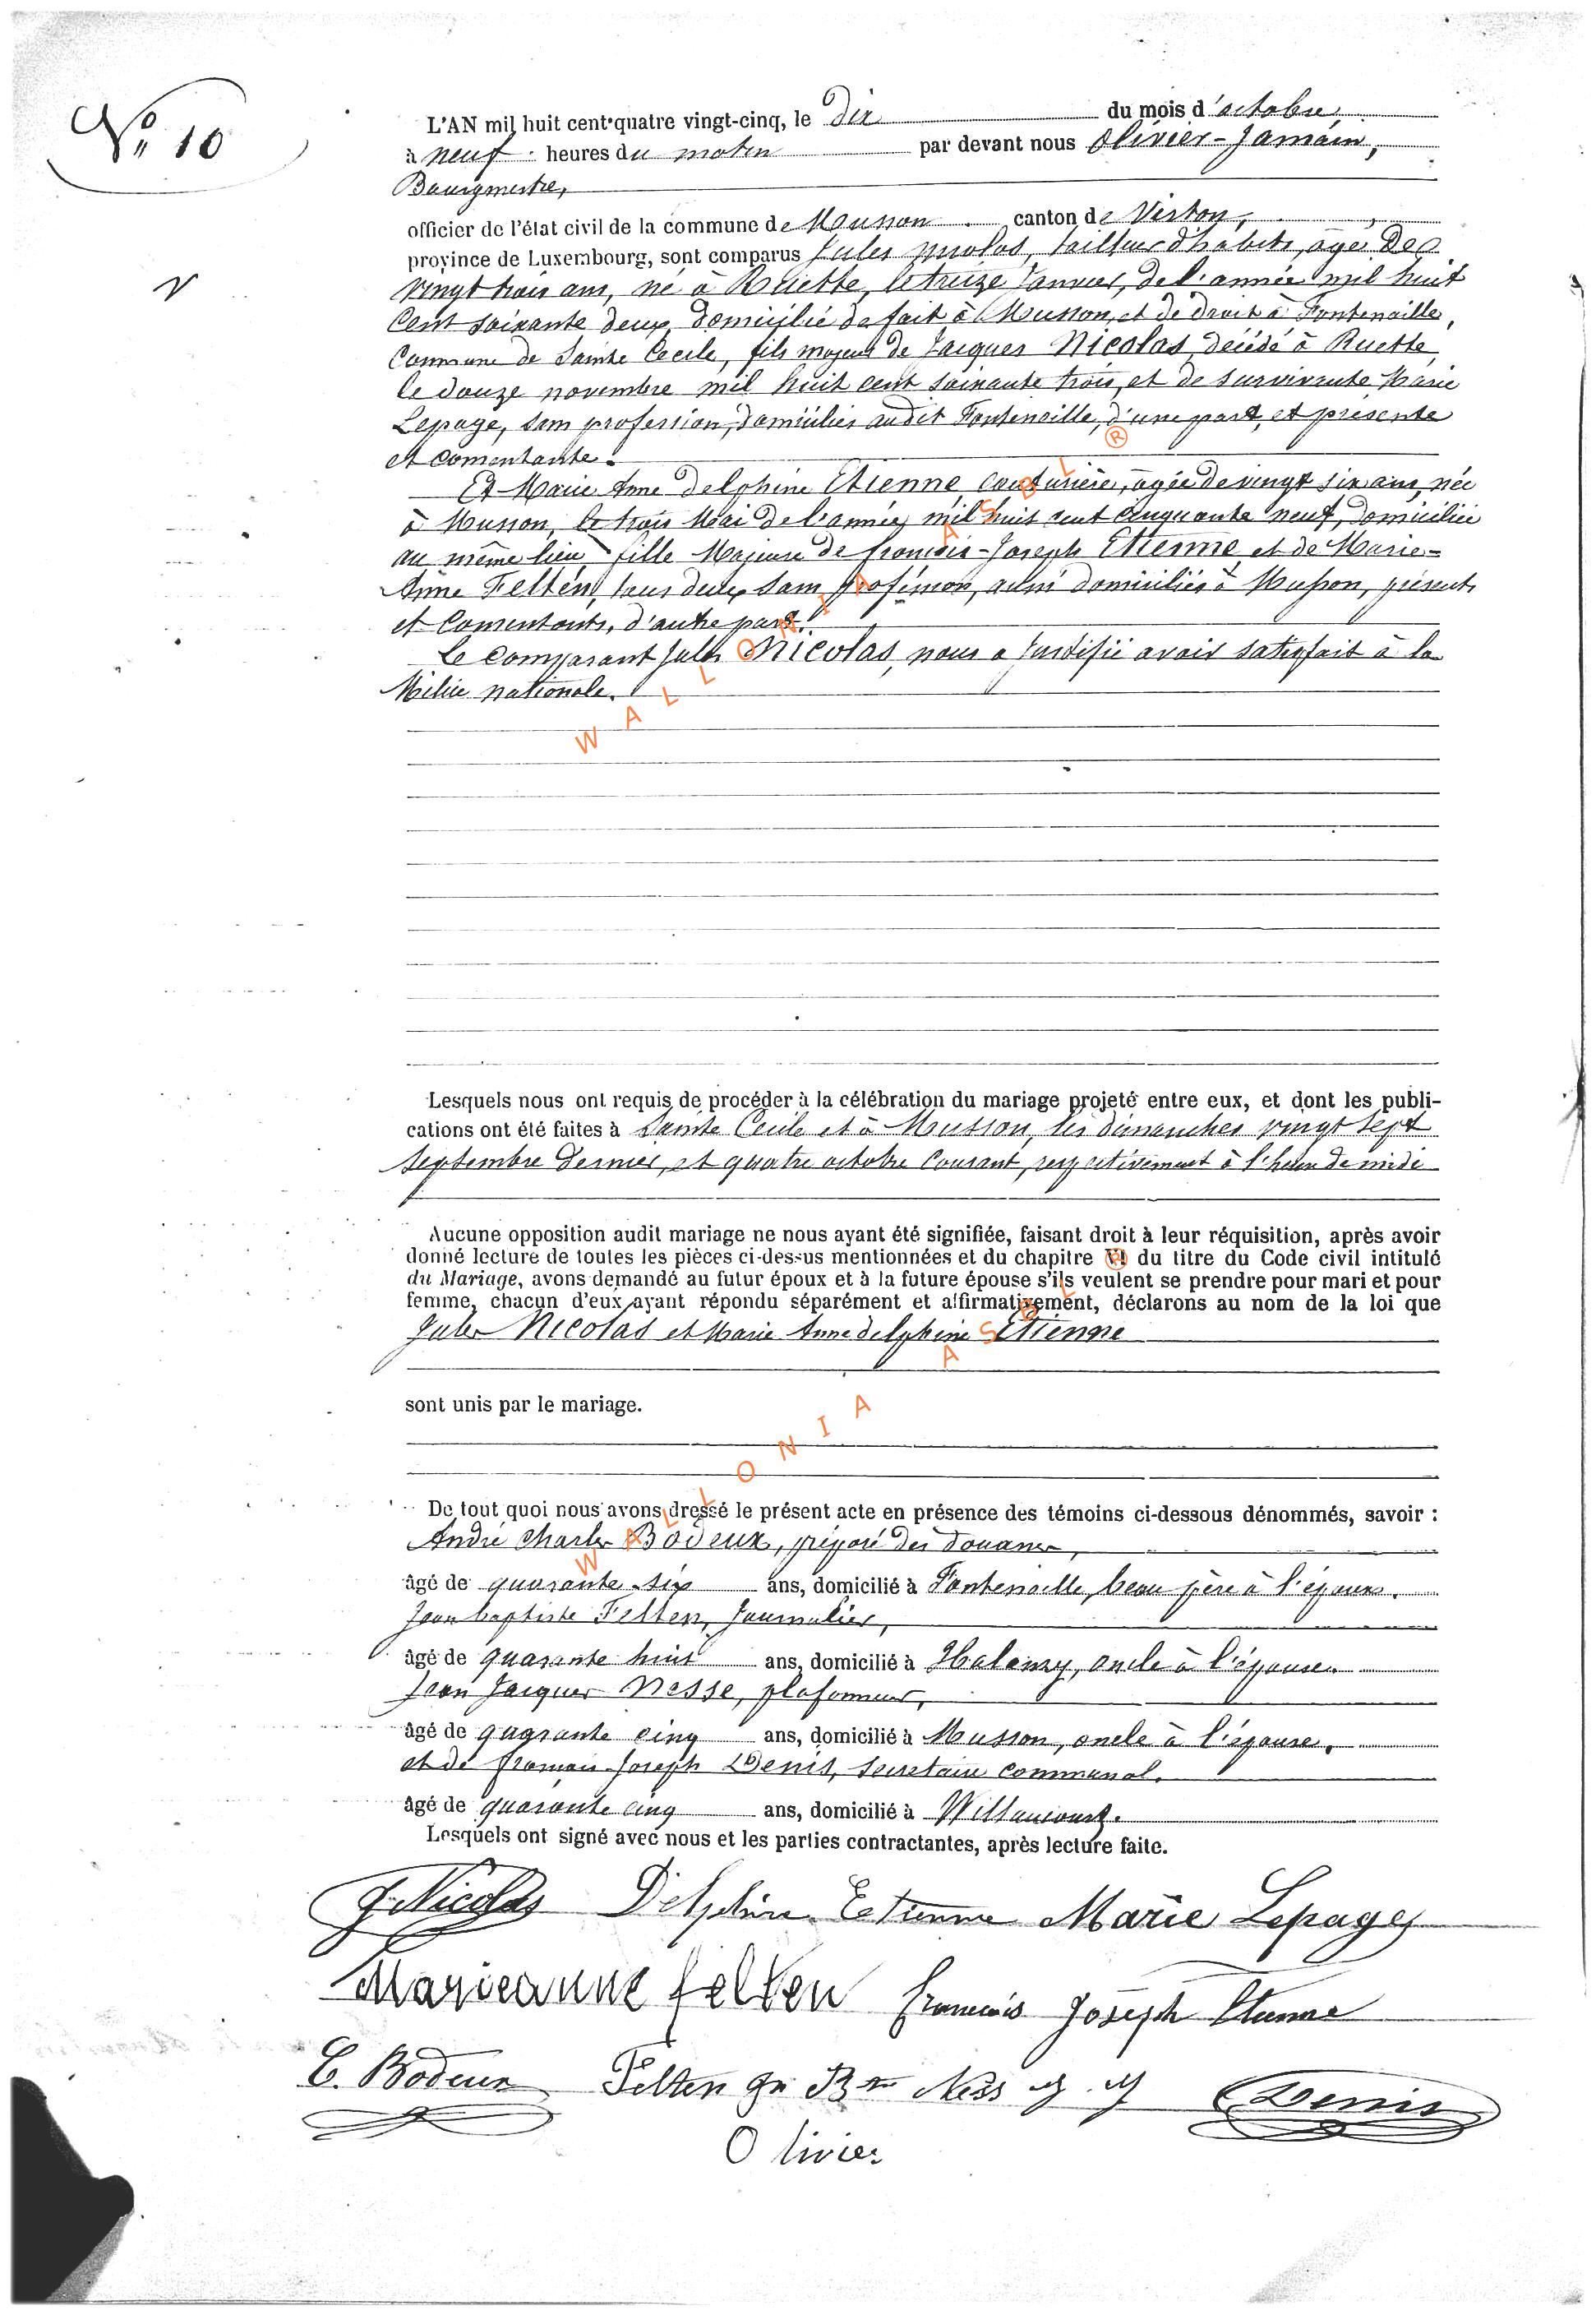 N° 10
L'AN mil huit cent quatre vingt-cinq, le dix du mois d'octobre
à neuf heures du matin par devant nous Olivier-Jamain,
Bourgmestre,
officier de l'état civil de la commune de Musson canton de Virton,
province de Luxembourg, sont comparus Jules Nicolas, tailleur d'habits, âgé de
vingt trois ans, né à Ruette, le treize Janvier, de l'année mil huit
cent soixante deux, domicilié de fait à Musson, et de droit à Fontenaille,
Commune de Sainte Cecile, fils majeur de Jacques Nicolas, décédé à Ruette,
le douze novembre mil huit cent soixante trois, et de survivante Marie
Lepage, sans profession, domiciliée audit Fontenaille, d'une part, et présente
et consentante.
Et Marie Anne Delphine Etienne, couturière, âgée de vingt six ans, née
à Musson, le trois Mai de l'année mil huit cent cinquante neuf, domiciliée
au même lieu, fille Majeure de françois-Joseph Etienne et de Marie-
Anne Felten, tous deux sans profession, aussi domiciliés à Musson, présents
et Consentants, d'autre part.
Le comparant Jules Nicolas, nous a justifié avoir satisfait à la
Milice nationale.
WALLONIA ASBL ®
Lesquels nous ont requis de procéder à la célébration du mariage projeté entre eux, et dont les publi-
cations ont été faites à Sainte Cecile et à Musson, les dimanches vingt sept
Septembre dernier, et quatre octobre Courant, respectivement à l'heure de midi
Aucune opposition audit mariage ne nous ayant été signifiée, faisant droit à leur réquisition, après avoir
donné lecture de toutes les pièces ci-dessus mentionnées et du chapitre VI du titre du Code civil intitulé
du Mariage, avons demandé au futur époux et à la future épouse s'ils veulent se prendre pour mari et pour
femme, chacun d'eux ayant répondu séparément et affirmativement, déclarons au nom de la loi que
Jules Nicolas et Marie Anne delphine Etienne
sont unis par le mariage.
WALLONIA ASBL ®
De tout quoi nous avons dressé le présent acte en présence des témoins ci-dessous dénommés, savoir :
André Charles Bodeux, préposé des douanes,
âgé de quarante-six ans, domicilié à Fontenaille, beau père à l'époux.
Jean baptiste Felten, Journalier,
âgé de quarante huit ans, domicilié à Halanzy, oncle à l'épouse.
Jean Jacques Nesse, plafonneur,
âgé de quarante cinq ans, domicilié à Musson, oncle à l'épouse.
et de françois-Joseph Denis, secretaire communal.
âgé de quarante cinq ans, domicilié à Willancourt.
Lesquels ont signé avec nous et les parties contractantes, après lecture faite.
J. Nicolas Delphine Etienne Marie Lepage
Marieanne felten francois Joseph Etienne
C. Bodeux Felten Jn Bte Ness J. J Denis
Olivier